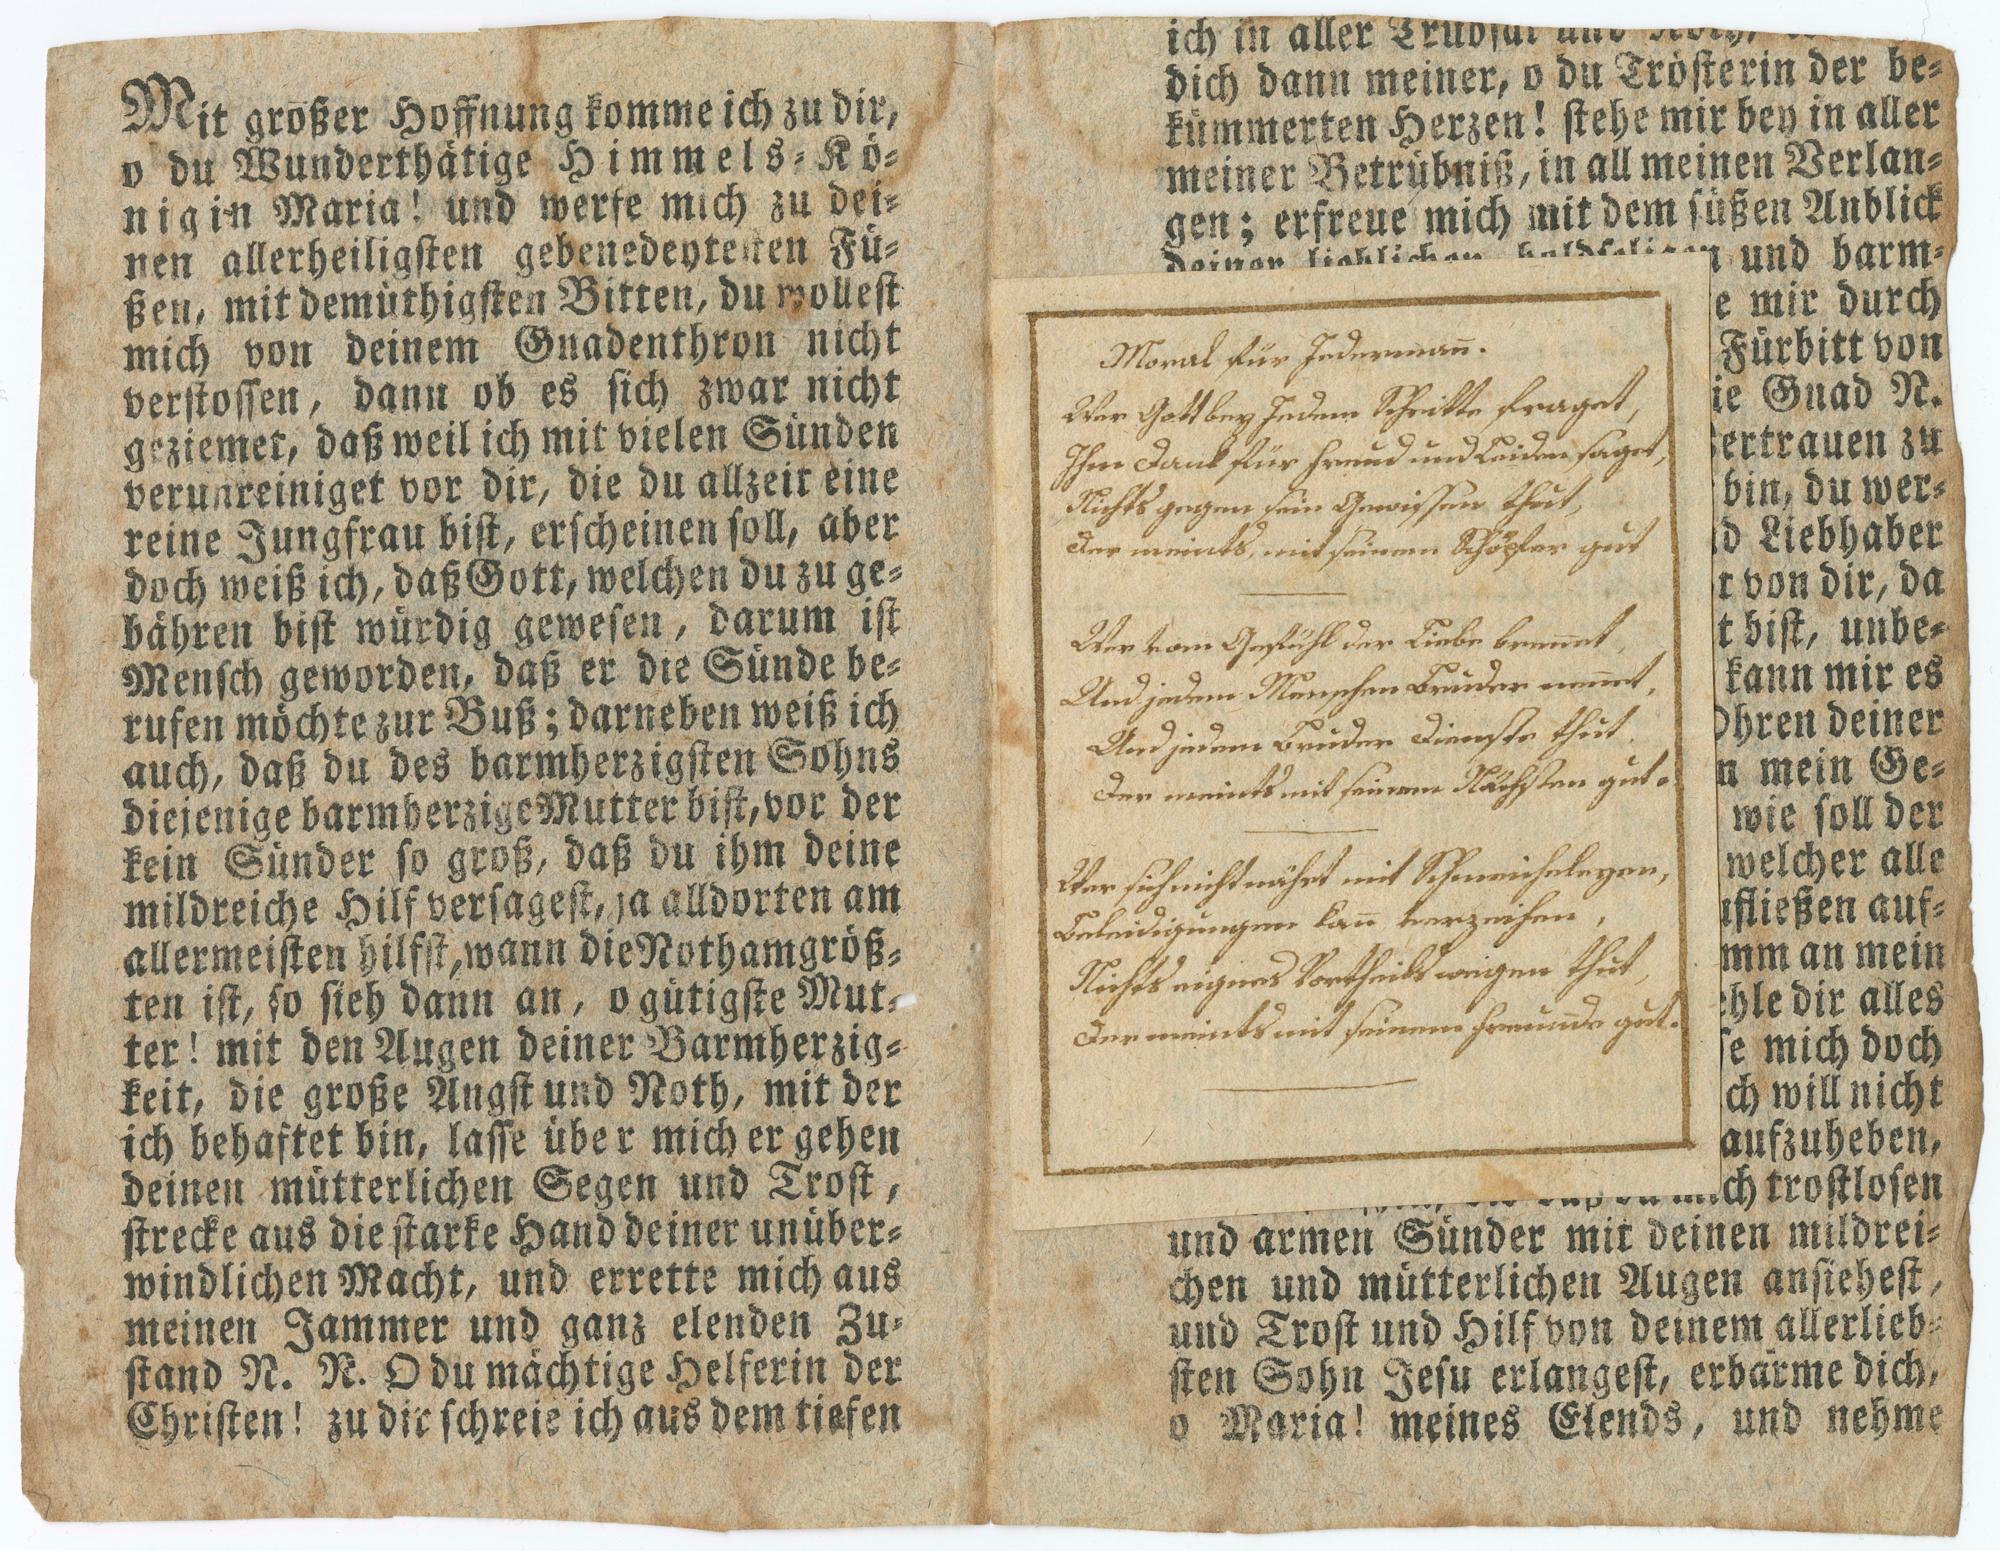 Mit großer Hoffnung komme ich zu dir,
o du Wunderthätige Himmels-Kö-
nigin Maria! und werfe mich zu dei-
nen allerheiligsten gebenedeytesten Fü-
ßen, mit demüthigsten Bitten, du wollest
mich von deinem Gnadenthron nicht
verstossen, dann ob es sich zwar nicht
geziemet, daß weil ich mit vielen Sünden
verunreiniget vor dir, die du allzeit eine
reine Jungfrau bist, erscheinen soll, aber
doch weiß ich, daß Gott, welchen du zu ge-
bähren bist würdig gewesen, darum ist
Mensch geworden, daß er die Sünde be-
rufen möchte zur Buß; darneben weiß ich
auch, daß du des barmherzigsten Sohns
diejenige barmherzige Mutter bist, vor der
kein Sünder so groß, daß du ihm deine
mildreiche Hilf versagest, ja alldorten am
allermeisten hilfst, wann die Noth am größ-
ten ist, so sieh dann an, o gütigste Mut-
ter! mit den Augen deiner Barmherzig-
keit, die große Angst und Noth, mit der
ich behaftet bin, lasse über mich ergehen
deinen mütterlichen Segen und Trost,
strecke aus die starke Hand deiner unüber-
windlichen Macht, und errette mich aus
meinen Jammer und ganz elenden Zu-
stand N. N. O du mächtige Helferin der
Christen! zu dir schreie ich aus dem tiefen
ich in aller Trübsal und Noth,
dich dann meiner, o du Trösterin der be-
kümmerten Herzen! stehe mir bey in aller
meiner Betrübniß, in all meinen Verlan-
gen; erfreue mich mit dem süßen Anblick
deiner lieblichen, holdseligen und barm-
e mir durch
Fürbitt von
ie Gnad N.
ertrauen zu
bin, du wer-
d Liebhaber
r von dir, da
t bist, unbe-
kann mir es
Ohren deiner
n mein Ge-
wie soll der
welcher alle
ufließen auf-
mm an mein
ehle dir alles
se mich doch
ch will nicht
aufzuheben,
daß du mich trostlosen
und armen Sünder mit deinen mildrei-
chen und mütterlichen Augen ansiehest,
und Trost und Hilf von deinem allerlieb-
sten Sohn Jesu erlangest, erbarme dich,
o Maria! meines Elends, und nehme
Moral für Jedermañ.
Wer Gott bey Jedem Schritte fraget,
Ihm Dank für Freud und Leiden saget,
Nichts gegen sein Gewissen thut,
Der meints mit seinem Schöpfer gut
Wer vom Gefühl der Liebe breñet,
Und jeden Menschen Bruder neñet,
Und jedem Bruder Dienste thut,
Der meints mit seinem Nächsten gut.
Wer sich nicht nährt mit Schmeicheleyen,
Beleidigungen kañ verzeihen,
Nichts eignes Vortheils wegen thut,
Der meints mit seinem Freunde gut.